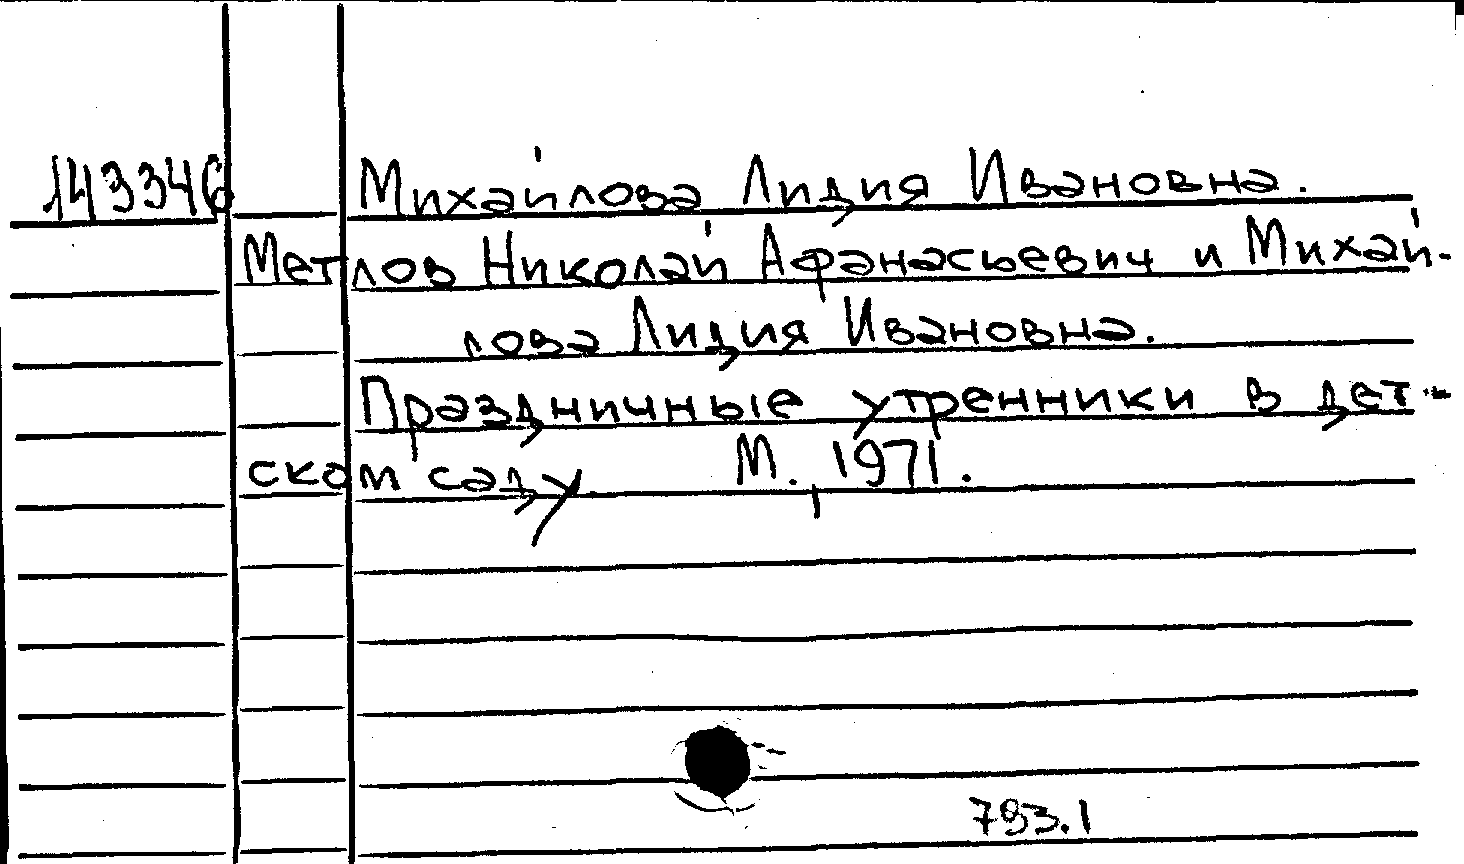 143346 Михайлова Лидия Ивановна.
Метлов Николай Афанасьевич и Михай-
лова Лидия Ивановна.
Праздничные утренники в дет-
ском саду. М., 1971.
793.1